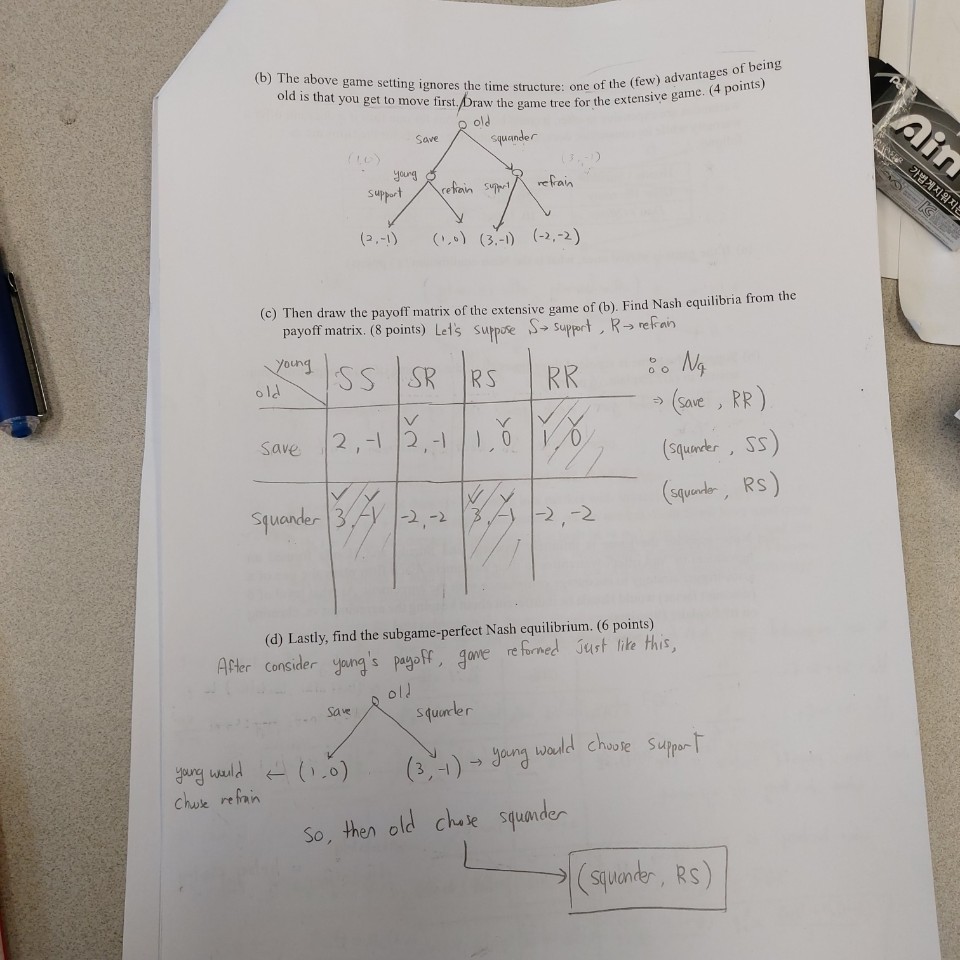 (b) The above game setting ignores the time structure: one of the (few) advantages of being
old is that you get to move first. Draw the game tree for the extensive game. (4 points)
old
save squander
(1,0)
young
support refrain support refrain
(2,-1) (1,0) (3,-1) (-2,-2)
(c) Then draw the payoff matrix of the extensive game of (b). Find Nash equilibria from the
payoff matrix. (8 points) Let's suppose S→ support, R→ refrain
young SS SR RS RR
old
save 2,-1 2,-1 1,0 1,0
squander 3,-1 -2,-2 3,-1 -2,-2
⇒ (save, RR)
(squander, SS)
(squander, RS)
(d) Lastly, find the subgame-perfect Nash equilibrium. (6 points)
After consider young's payoff, game reformed just like this,
old
save squander
young would ← (1,0) (3,-1) → young would choose support
chose refrain
So, then old chose squander
(squander, RS)
Ain